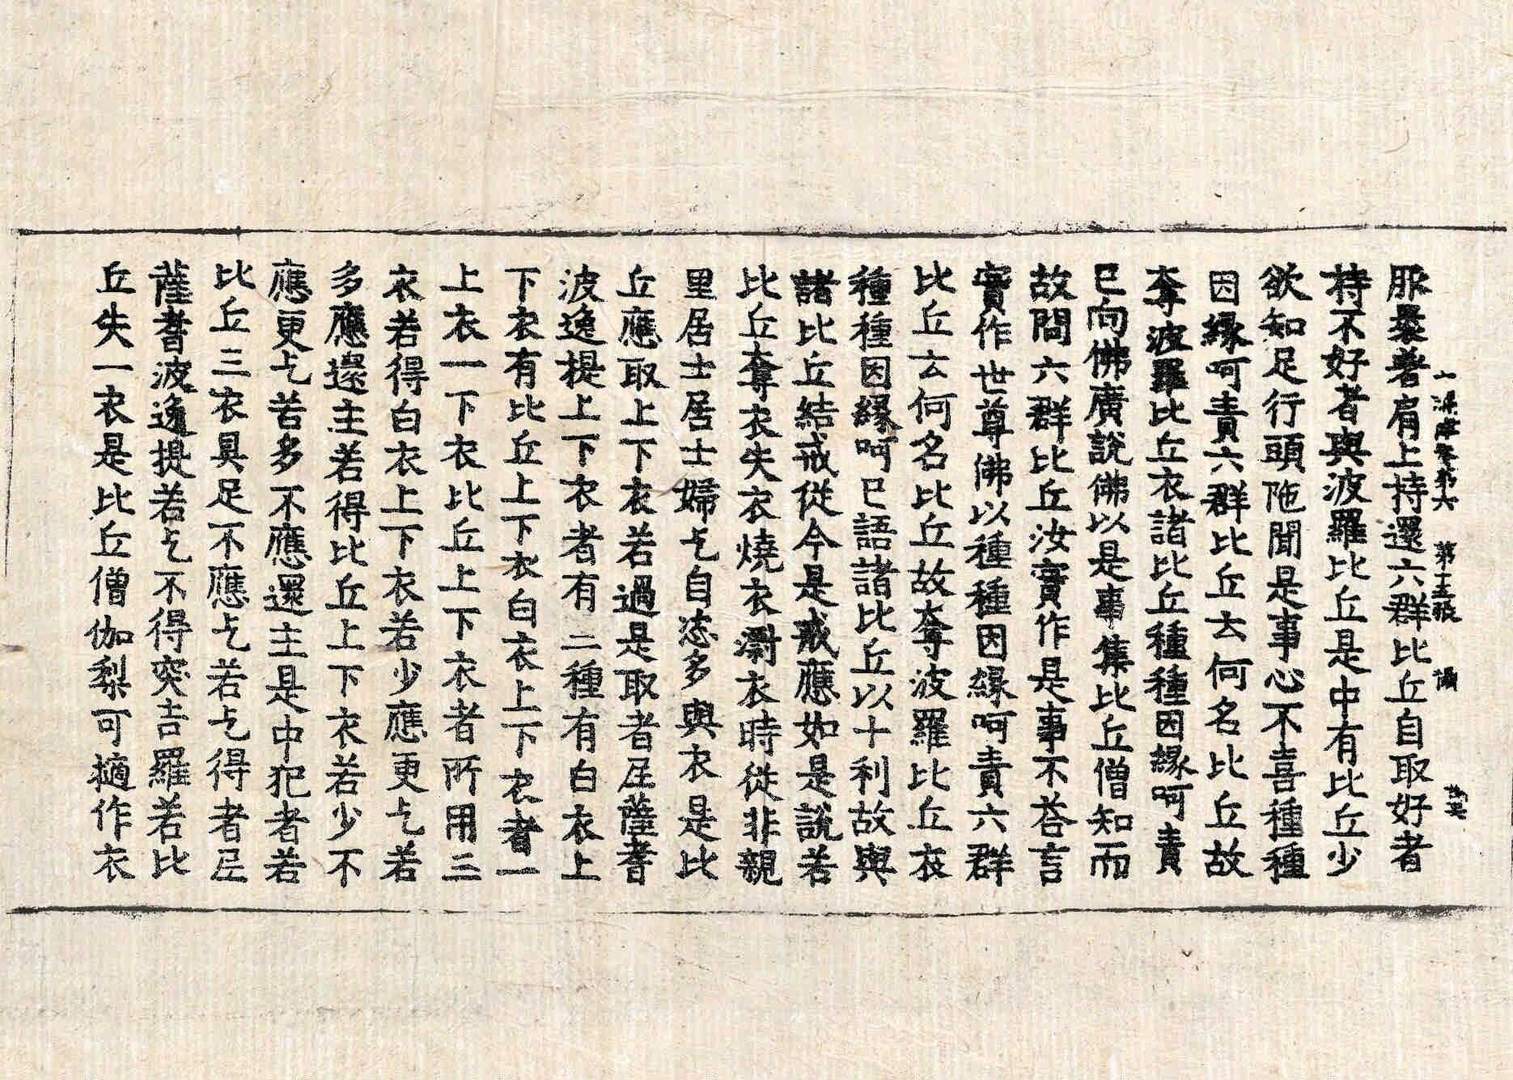 服曩著肩上持還六群比丘自取好者
十誦律第六 第十五張 攝
持不好者與波羅比丘是中有比丘少
欲知足行頭陁聞是事心不喜種種
因緣呵責六群比丘云何名比丘故
奪波羅比丘衣諸比丘種種因緣呵責
已向佛廣說佛以是事集比丘僧知而
故問六群比丘汝實作是事不荅言
實作世尊佛以種種因緣呵責六群
比丘云何名比丘故奪波羅比丘衣
種種因緣呵已語諸比丘以十利故與
諸比丘結戒從今是戒應如是說若
比丘奪衣失衣燒衣漂衣時從非親
里居士居士婦乞自恣多與衣是比
丘應取上下衣若過是取者尼薩耆
波逸提上下衣者有二種有白衣上
下衣有比丘上下衣白衣上下衣者一
上衣一下衣比丘上下衣者所用三
衣若得白衣上下衣若少應更乞若
多應還主若得比丘上下衣若少不
應更乞若多不應還主是中犯者若
比丘三衣具足不應乞若乞得者尼
薩耆波逸提若乞不得突吉羅若比
丘失一衣是比丘僧伽梨可擿作衣